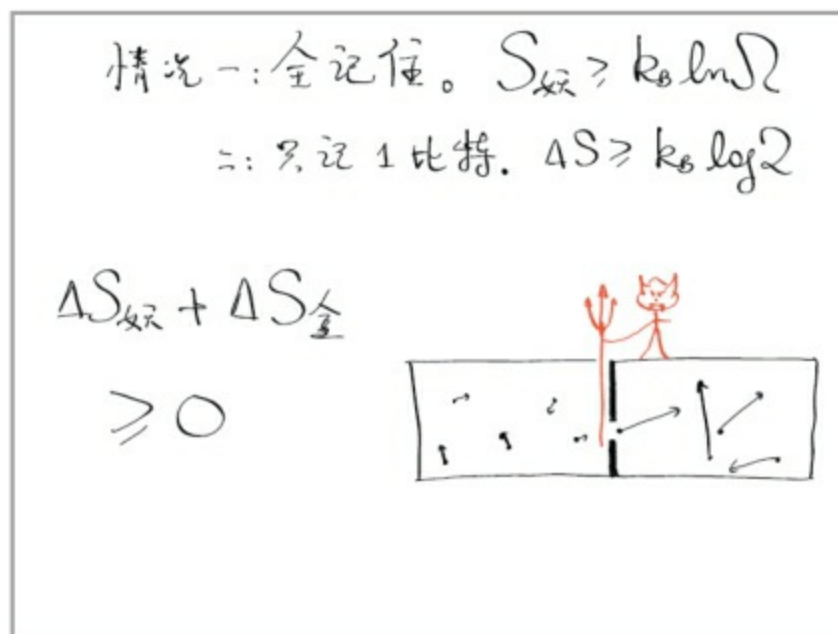 情况一:全记住。 S妖 ≥ k_B lnΩ
二:只记1比特. ΔS ≥ k_B log2
ΔS妖 + ΔS盒
≥ 0